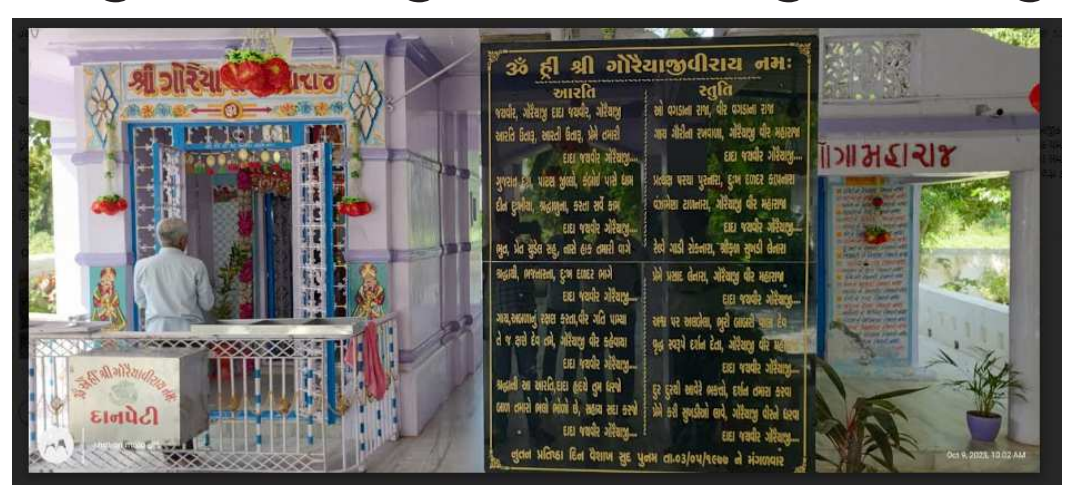 શ્રી ગોરૈયા
ૐ હ્રીં શ્રી ગોરૈયાજીવીરાય નમઃ
આરતિ
જયવીર, ગોરૈયાજી દાદા જયવીર, ગોરૈયાજી
આરતિ ઉતારૂ, આરતી ઉતારૂ, પ્રેમે તમારી
દાદા જયવીર ગોરૈયાજી....
ગુજરાત દેશે, પાટણ જીલ્લો, કંબોઈ પાસે ધામ
દીન દુઃખીયા, શ્રદ્ધાળુના, કરતા સર્વે કામ
દાદા જયવીર ગોરૈયાજી....
ભુત, પ્રેત ચુડેલ સહુ, નાસે હાક તમારી વાગે
શ્રદ્ધાથી, ભજનારના, દુઃખ દળદર ભાગે
દાદા જયવીર ગોરૈયાજી....
ગાય,અબળાનું રક્ષણ કરતા,વીર ગતિ પામ્યા
તે જ ક્ષણે દેવ તમે, ગોરૈયાજી વીર કહેવાયા
દાદા જયવીર ગોરૈયાજી....
શ્રદ્ધાની આ આરતિ,દાદા હૃદયે તુમ ધરજો
બાળ તમારો ભલો ભોળો છે, સહાય સદા કરજો
દાદા જયવીર ગોરૈયાજી....
સ્તુતિ
ઓ વગડાના રાજા, વીર વગડાના રાજા
ગાય ગૌરીના રખવાળા, ગોરૈયાજી વીર મહારાજા
દાદા જયવીર ગોરૈયાજી....
પ્રત્યક્ષ પરચા પુરનારા, દુઃખ દળદર કાપનારા
વંઝામેણા ટાળનારા, ગોરૈયાજી વીર મહારાજા
દાદા જયવીર ગોરૈયાજી....
રેલવે ગાડી રોકનારા, શ્રીફળ સુખડી લેનારા
પ્રેમે પ્રસાદ લેનારા, ગોરૈયાજી વીર મહારાજા
દાદા જયવીર ગોરૈયાજી....
અશ્વ પર અલબેલા, ભુરી બાબરી વાળા દેવ
વૃદ્ધ સ્વરૂપે દર્શન દેતા, ગોરૈયાજી વીર મહારાજા
દાદા જયવીર ગોરૈયાજી....
દુર દુરથી આવેરે ભક્તો, દર્શન તમારા કરવા
પ્રેમે કરી સુખડીઓ લાવે, ગોરૈયાજી વીરને ધરવા
દાદા જયવીર ગોરૈયાજી....
નુતન પ્રતિષ્ઠા દિન વૈશાખ સુદ પુનમ તા.૦૩/૦૫/૧૯૭૭ ને મંગળવાર
ગોગા મહારાજ
ૐ હ્રીં શ્રી ગોરૈયાવીરાય નમઃ
દાનપેટી
Oct 9, 2023, 10:02 AM